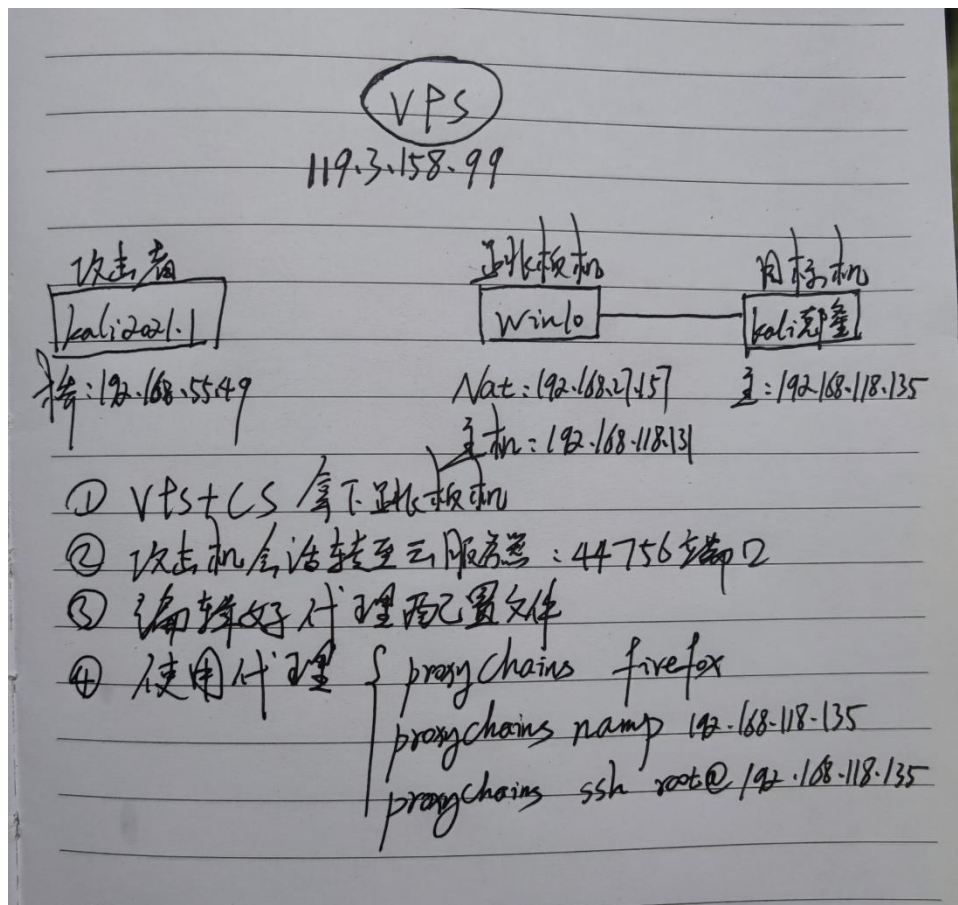 VPS
119.3.158.99
攻击者 跳板机 目标机
kali2021.1 Win10 kali克隆
桥:192.168.55.49 Nat:192.168.27.157 主:192.168.118.135
主机:192.168.118.131
① VPS+CS 拿下跳板机
② 攻击机会话转至云服务器:44756端口
③ 编辑好代理配置文件
④ 使用代理 { proxychains firefox
proxychains namp 192.168.118.135
proxychains ssh root@192.168.118.135